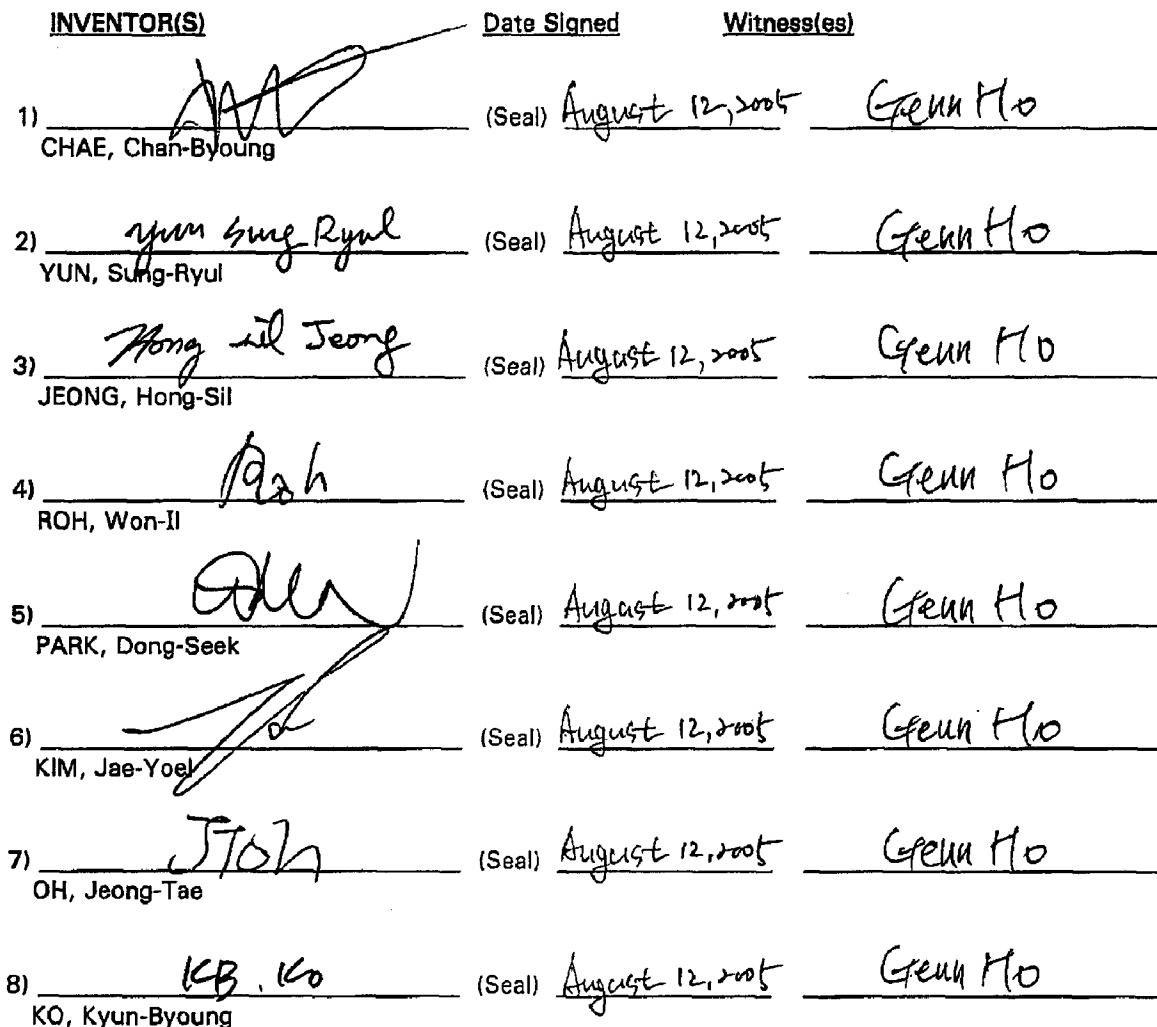 INVENTOR(S) Date Signed Witness(es)
1) (Seal) August 12, 2005 Genn Ho
CHAE, Chan-Byoung
2) Yun Sung Ryul (Seal) August 12, 2005 Genn Ho
YUN, Sung-Ryul
3) Hong sil Jeong (Seal) August 12, 2005 Genn Ho
JEONG, Hong-Sil
4) Roh (Seal) August 12, 2005 Genn Ho
ROH, Won-Il
5) (Seal) August 12, 2005 Genn Ho
PARK, Dong-Seek
6) (Seal) August 12, 2005 Genn Ho
KIM, Jae-Yoel
7) JTOh (Seal) August 12, 2005 Genn Ho
OH, Jeong-Tae
8) KB. Ko (Seal) August 12, 2005 Genn Ho
KO, Kyun-Byoung